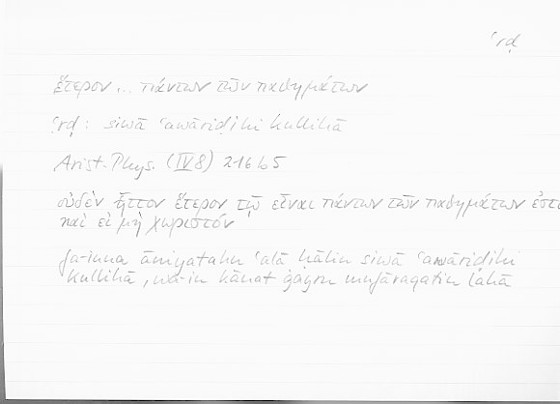 ʿrḍ
ἕτερον ... πάντων τῶν παθημάτων
ʿrḍ: siwā ʿawāriḍihi kullihā
Arist. Phys. (IV 8) 216 b 5
οὐδὲν ἧττον ἕτερον τῷ εἶναι πάντων τῶν παθημάτων ἐστι
καὶ εἰ μὴ χωριστόν
fa-inna ānīyatahu ʿalā ḥālin siwā ʿawāriḍihi
kullihā, wa-in kānat ġayra mufāraqatin lahā